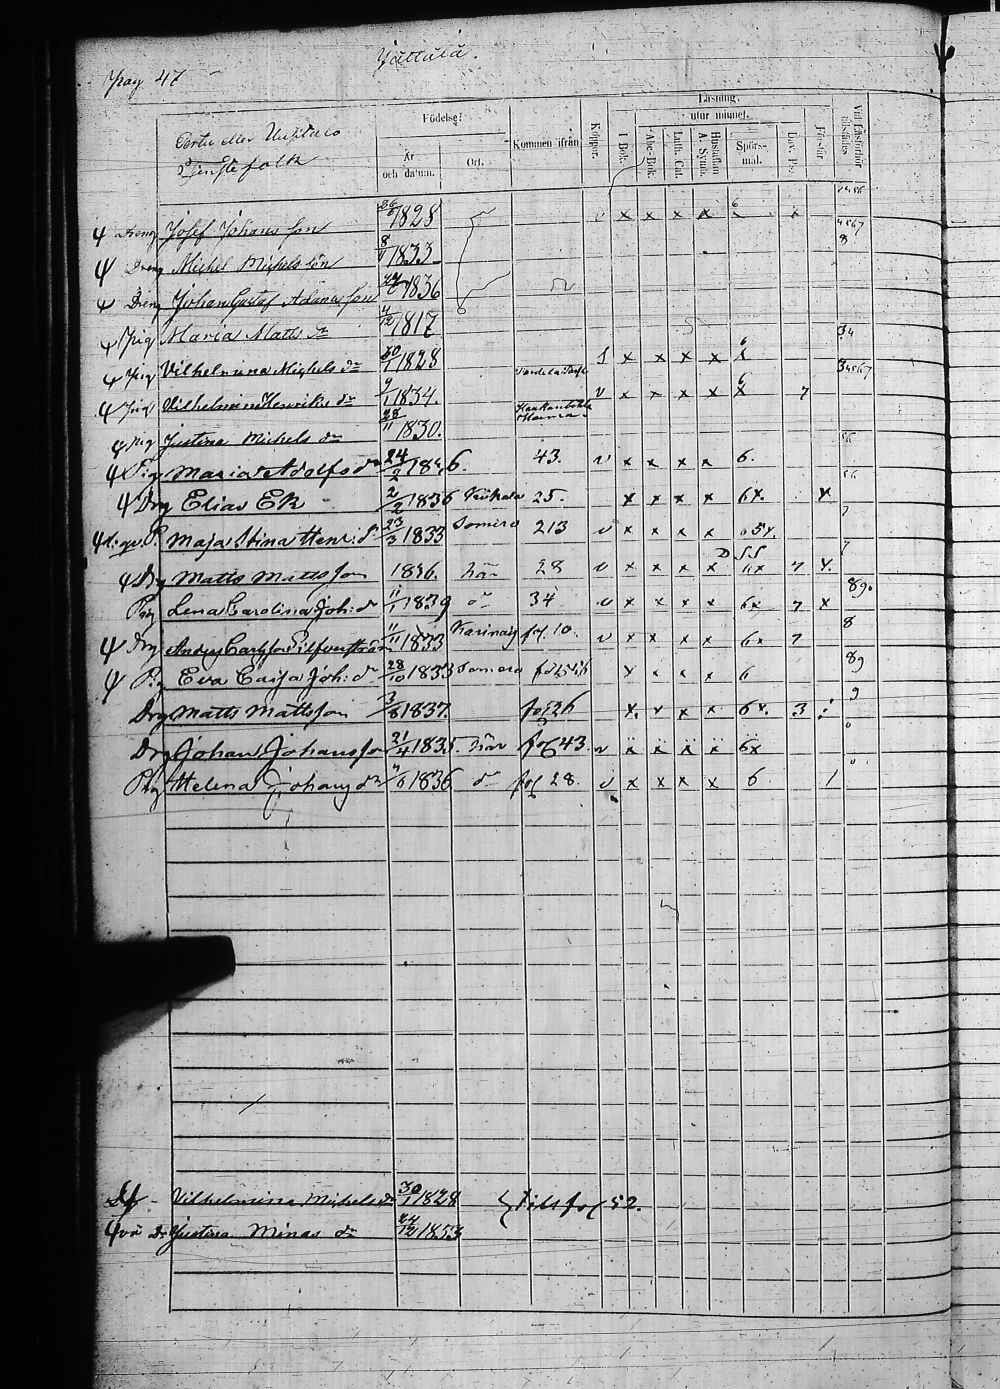 Jättälä.
pag 47
Bertu eller Uusitalo
Tjenstefolk
Födelse:
År
och datum.
Ort.
Kommen ifrån
Koppor.
Läsning.
utur minnet.
I Bok.
Abc-Bok
Luth. Cat.
Hustaflan
A. Symb.
Spörs-
mål.
Dav. Ps.
Förstår
Vid läsförhör
tillstädes
Dreng Josef Johans son 26/6 1828 v x x x x 6 x 2456
Dreng Michel Michels son 8/ 1833 4567 8
Dreng Johan Gustaf Adams son 1836
Pig Maria Matts dr 4/12 1817
Pig Vilhelmina Michels dr 30/1 1828 1 x x x x 6 x 34
Pig Vilhelmina Henriks dr 9/1 1834. v x x x x 6 x 7 34567
Pig Justina Michels dr 28/11 1830.
Pig Maria Adolfs dr 24/2 6. 43. v x x x x 6. 56
Drg Elias Ek 2/2 1836 25. x x x x 6x. x 56
P. Maja Stina Henr: dr 23/3 1833 Somero 213 v x x x x 5x. 7
Drg Matts Matts son 1836. här 28 v x x x x 6x 7 x. 7
Pig Lena Carolina Joh: dr 11/1 1839 dr 34 v x x x x 6x 7 x 89.
Drg Anders Carlsson Silfverström 11/11 1833 Karinais fol. 10. v x x x x 6x 7 8
Pig Eva Caisa Joh: dr 28/10 1833 Somero x x x x 6 89
Drg Matts Matts son 3/8 1837. fol 26 x. x x x 6x. 3 9
Drg Johan Johans son 21/4 1835. här fol 43. v x x x x 6x
Pig Helena Johans dr 1836 dr fol 28. v x x x x 6 1
Vilhelmina Michels dr 30/1 1828 } till fol 52.
Justina Minas dr 24/12 1853